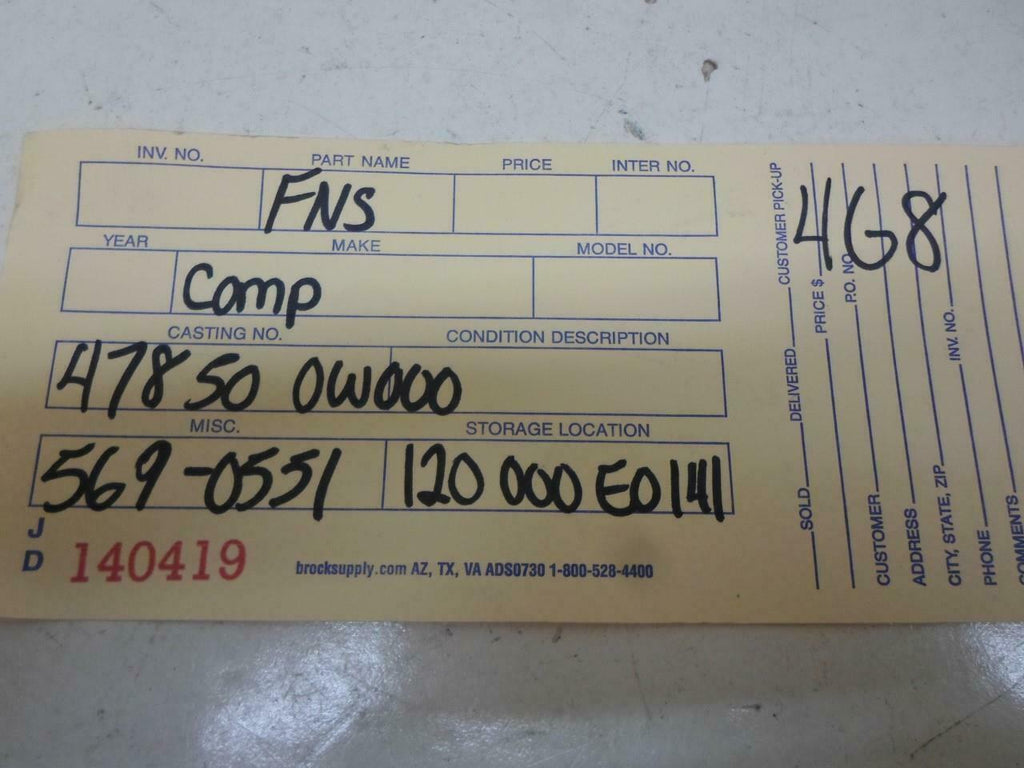 INV. NO. PART NAME PRICE INTER NO.
FNS
YEAR MAKE MODEL NO.
Comp
CASTING NO. CONDITION DESCRIPTION
47850 0W000
MISC. STORAGE LOCATION
569-0551 120 000 E0141
J
D 140419
brocksupply.com AZ, TX, VA ADS0730 1-800-528-4400
4G8
SOLD DELIVERED CUSTOMER PICK-UP
PRICE $
P.O. NO.
CUSTOMER
ADDRESS
CITY, STATE, ZIP INV. NO.
PHONE
COMMENTS